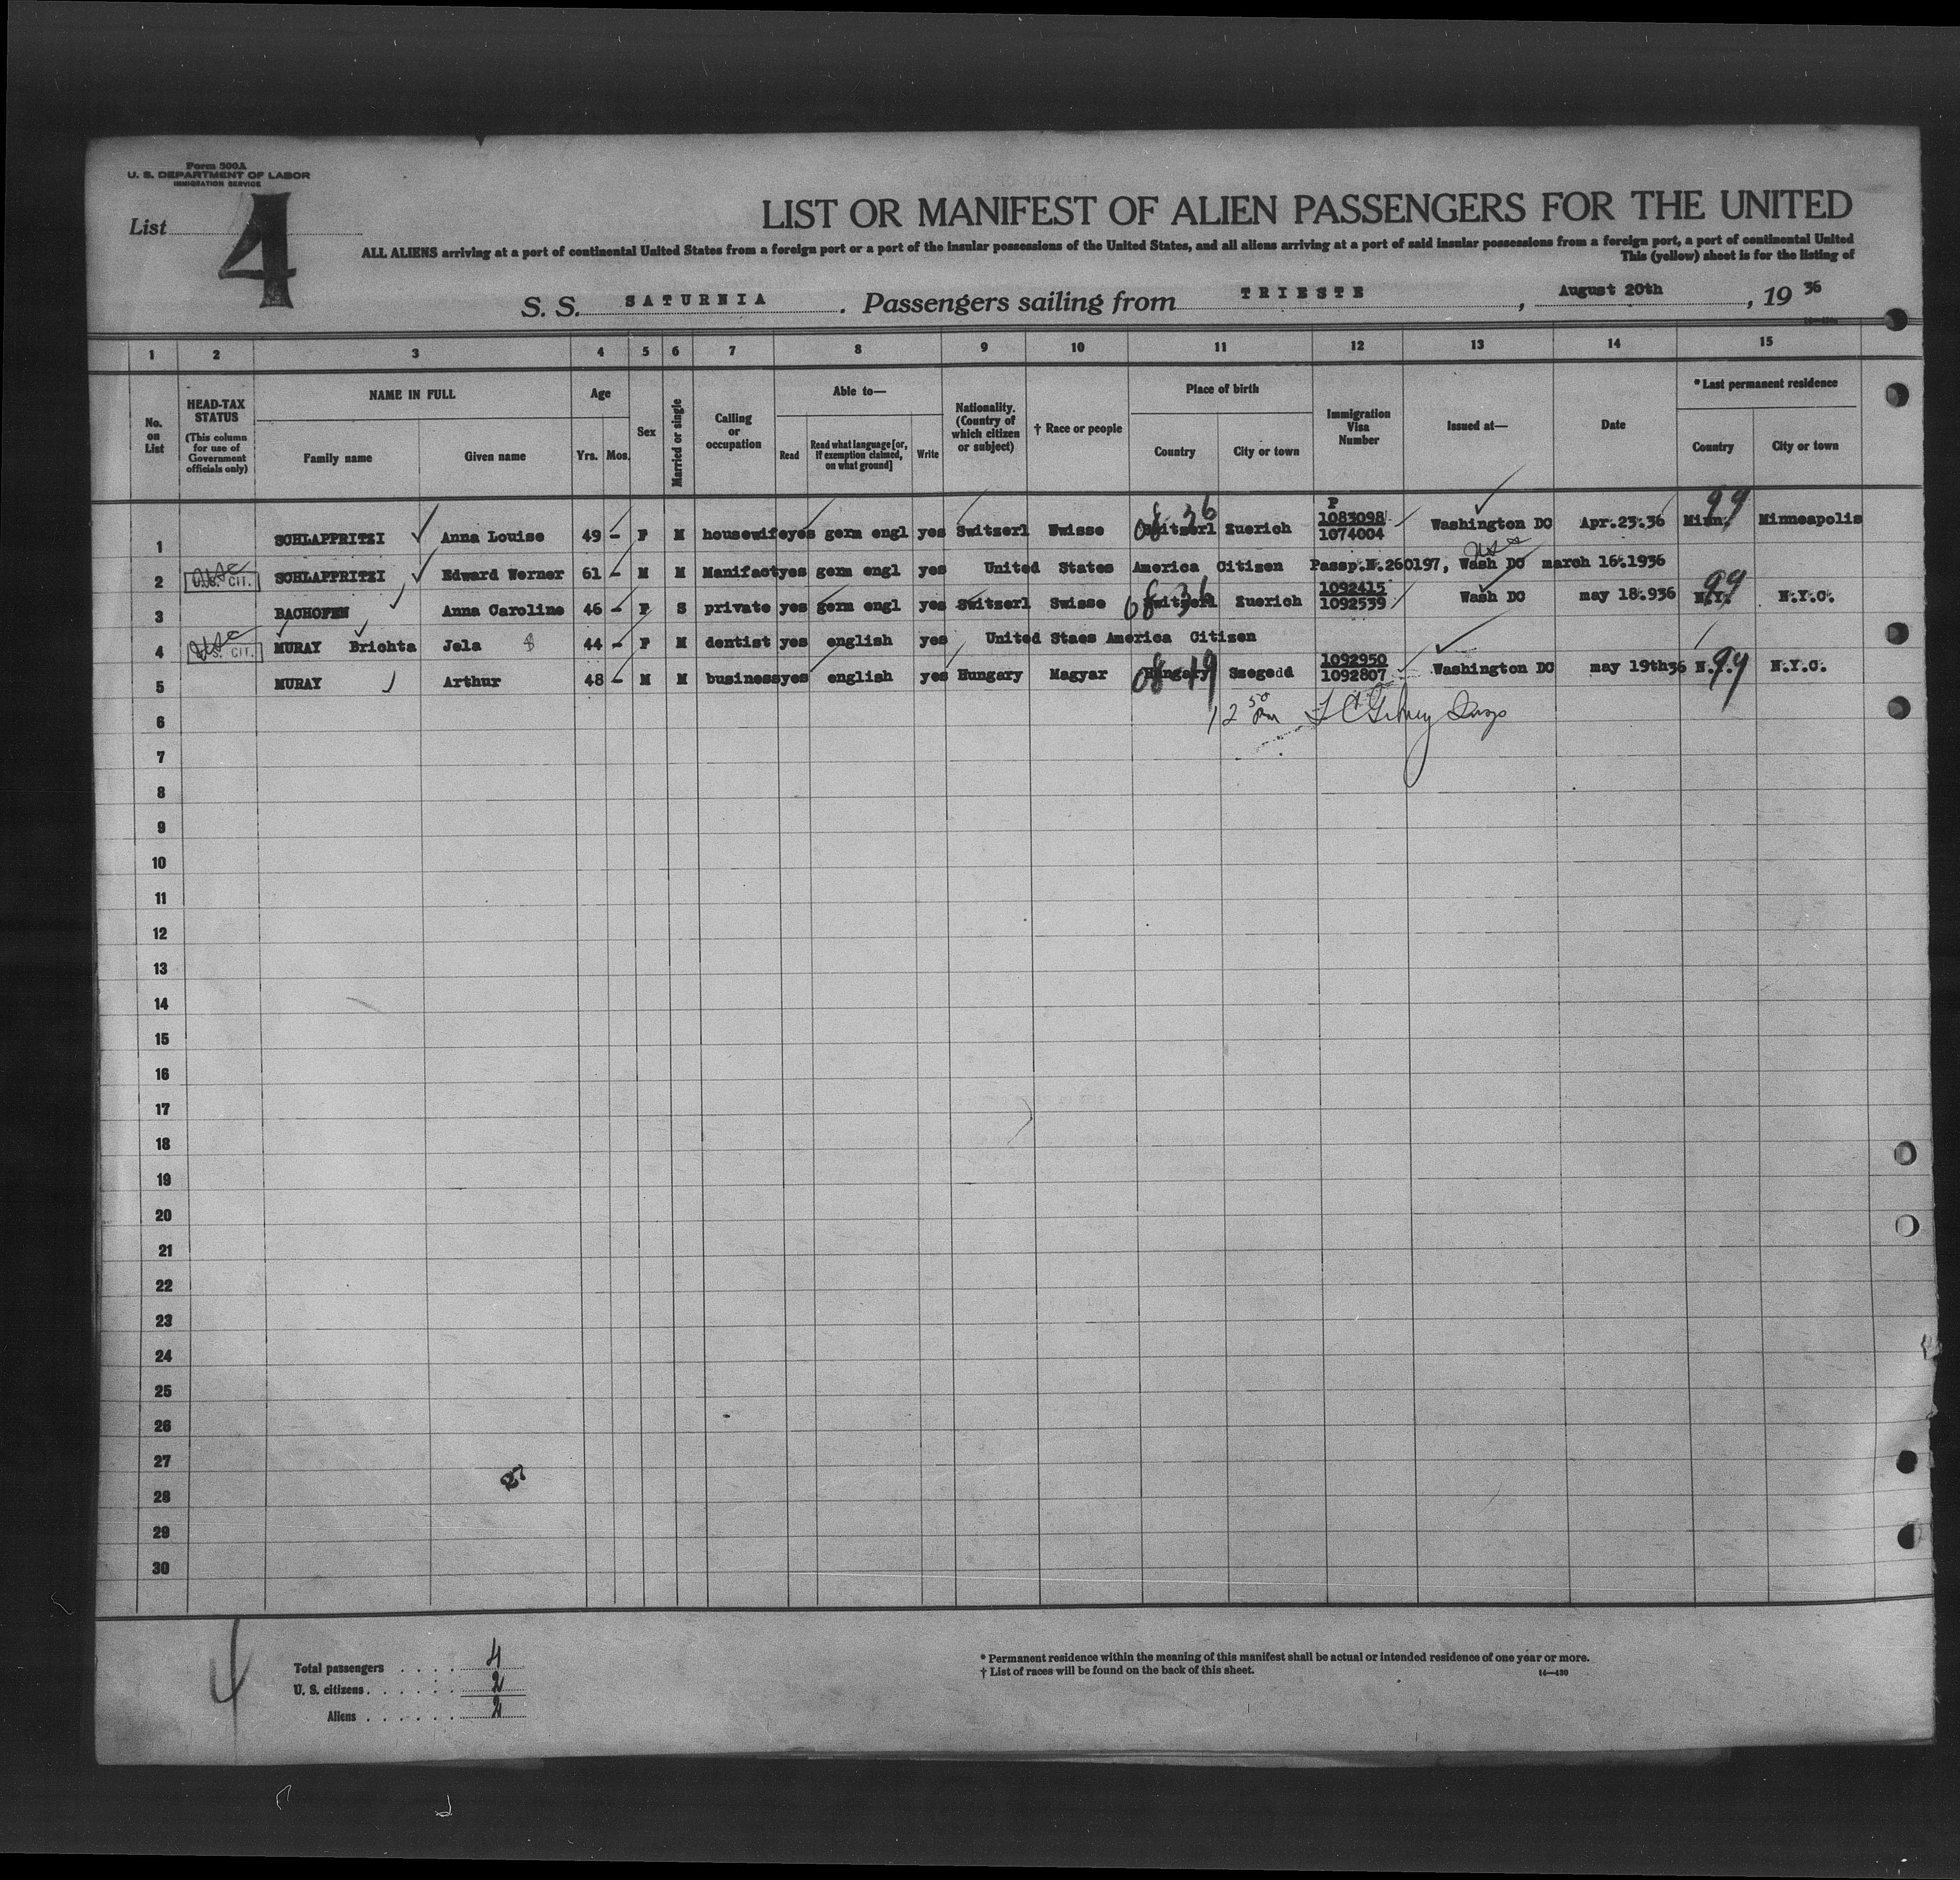 Form 500A
U. S. DEPARTMENT OF LABOR
IMMIGRATION SERVICE
List 4
LIST OR MANIFEST OF ALIEN PASSENGERS FOR THE UNITED
ALL ALIENS arriving at a port of continental United States from a foreign port or a port of the insular possessions of the United States, and all aliens arriving at a port of said insular possessions from a foreign port, a port of continental United
This (yellow) sheet is for the listing of
S. S. SATURNIA. Passengers sailing from TRIESTE, August 20th, 19 36
1 2 3 4 5 6 7 8 9 10 11 12 13 14 15
No. on List
HEAD-TAX STATUS (This column for use of Government officials only)
NAME IN FULL
Family name Given name
Age
Yrs. Mos.
Sex
Married or single
Calling or occupation
Able to—
Read Read what language [or, if exemption claimed, on what ground] Write
Nationality. (Country of which citizen or subject)
† Race or people
Place of birth
Country City or town
Immigration Visa Number
Issued at—
Date
* Last permanent residence
Country City or town
1 SCHLAPPRITZI Anna Louise 49 - F M housewife yes germ engl yes Switzerl Swisse Switzerl Zuerich P 1083098 1074004 Washington DC Apr.23.36 Minn. Minneapolis
08 36 99
2 U.S. CIT. SCHLAPPRITZI Edward Werner 61 - M M Manifact yes germ engl yes United States America Citizen Passp.N.260197, Wash DC march 16.1936
3 BACHOFEN Anna Caroline 46 - F S private yes germ engl yes Switzerl Swisse Switzerl Zuerich 1092415 1092539 Wash DC may 18.936 N.Y. N.Y.C.
08 36 99
4 U.S. CIT. MURAY Brichta Jela 44 - F M dentist yes english yes United Staes America Citizen
5 MURAY Arthur 48 - M M business yes english yes Hungary Magyar Hungary Szegedd 1092950 1092807 Washington DC may 19th36 N.Y. N.Y.C.
08 19 99
6 12 50 Pm
7
8
9
10
11
12
13
14
15
16
17
18
19
20
21
22
23
24
25
26
27
28
29
30
27
4
Total passengers . . . . 4
U. S. citizens . . . . . . 2
Aliens . . . . . . 2
* Permanent residence within the meaning of this manifest shall be actual or intended residence of one year or more.
† List of races will be found on the back of this sheet.
14—430